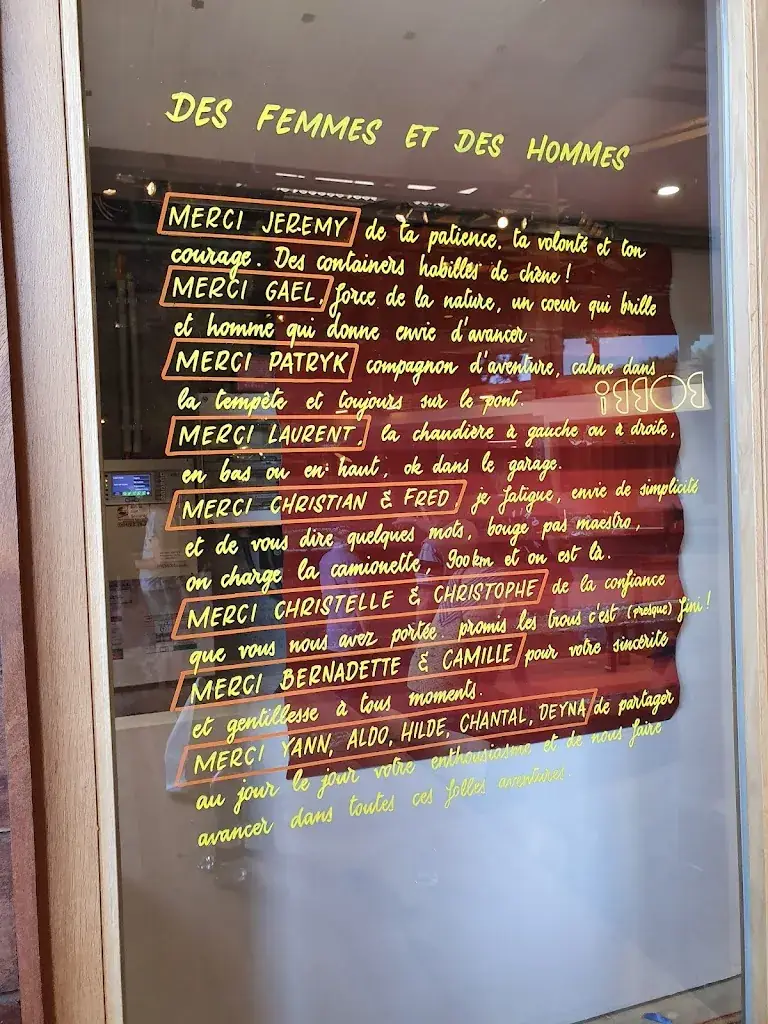 DES FEMMES ET DES HOMMES
MERCI JEREMY de ta patience, ta volonté et ton
courage. Des containers habillés de chêne !
MERCI GAEL, force de la nature, un coeur qui brille
et homme qui donne envie d'avancer.
MERCI PATRYK compagnon d'aventure, calme dans
la tempête et toujours sur le pont.
BOBBI
MERCI LAURENT, la chaudière à gauche ou à droite,
en bas ou en haut, ok dans le garage.
MERCI CHRISTIAN & FRED je fatigue, envie de simplicité
et de vous dire quelques mots, bouge pas maestro,
on charge la camionette, 900km et on est là.
MERCI CHRISTELLE & CHRISTOPHE de la confiance
que vous nous avez portée. promis les trous c'est (presque) fini !
MERCI BERNADETTE & CAMILLE pour votre sincérité
et gentillesse à tous moments.
MERCI YANN, ALDO, HILDE, CHANTAL, DEYNA de partager
au jour le jour votre enthousiasme et de nous faire
avancer dans toutes ces folles aventures.